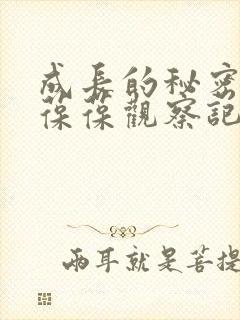 成長的秘密
葆葆觀察記
兩耳就是菩提